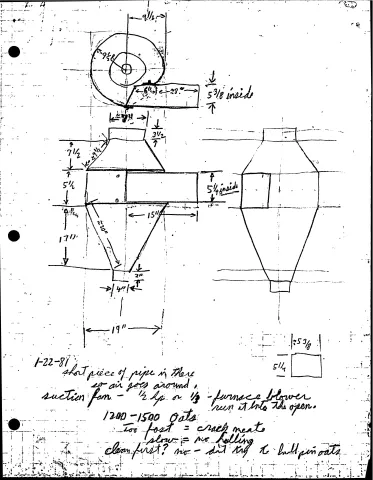 9 1/2
5 3/8 inside
3 1/2
7 1/2
5 1/2
5 1/4 inside
15"
17"
4"
19"
5 3/8
5 1/4
1-22-81
short piece of pipe in there
so air goes around.
suction fan - 1/2 hp or 1/3 - furnace blower
run it into the open.
1200-1500 oats
too fast = crack meats
slow = no hulling
clean first? no - but try to pull pin oats